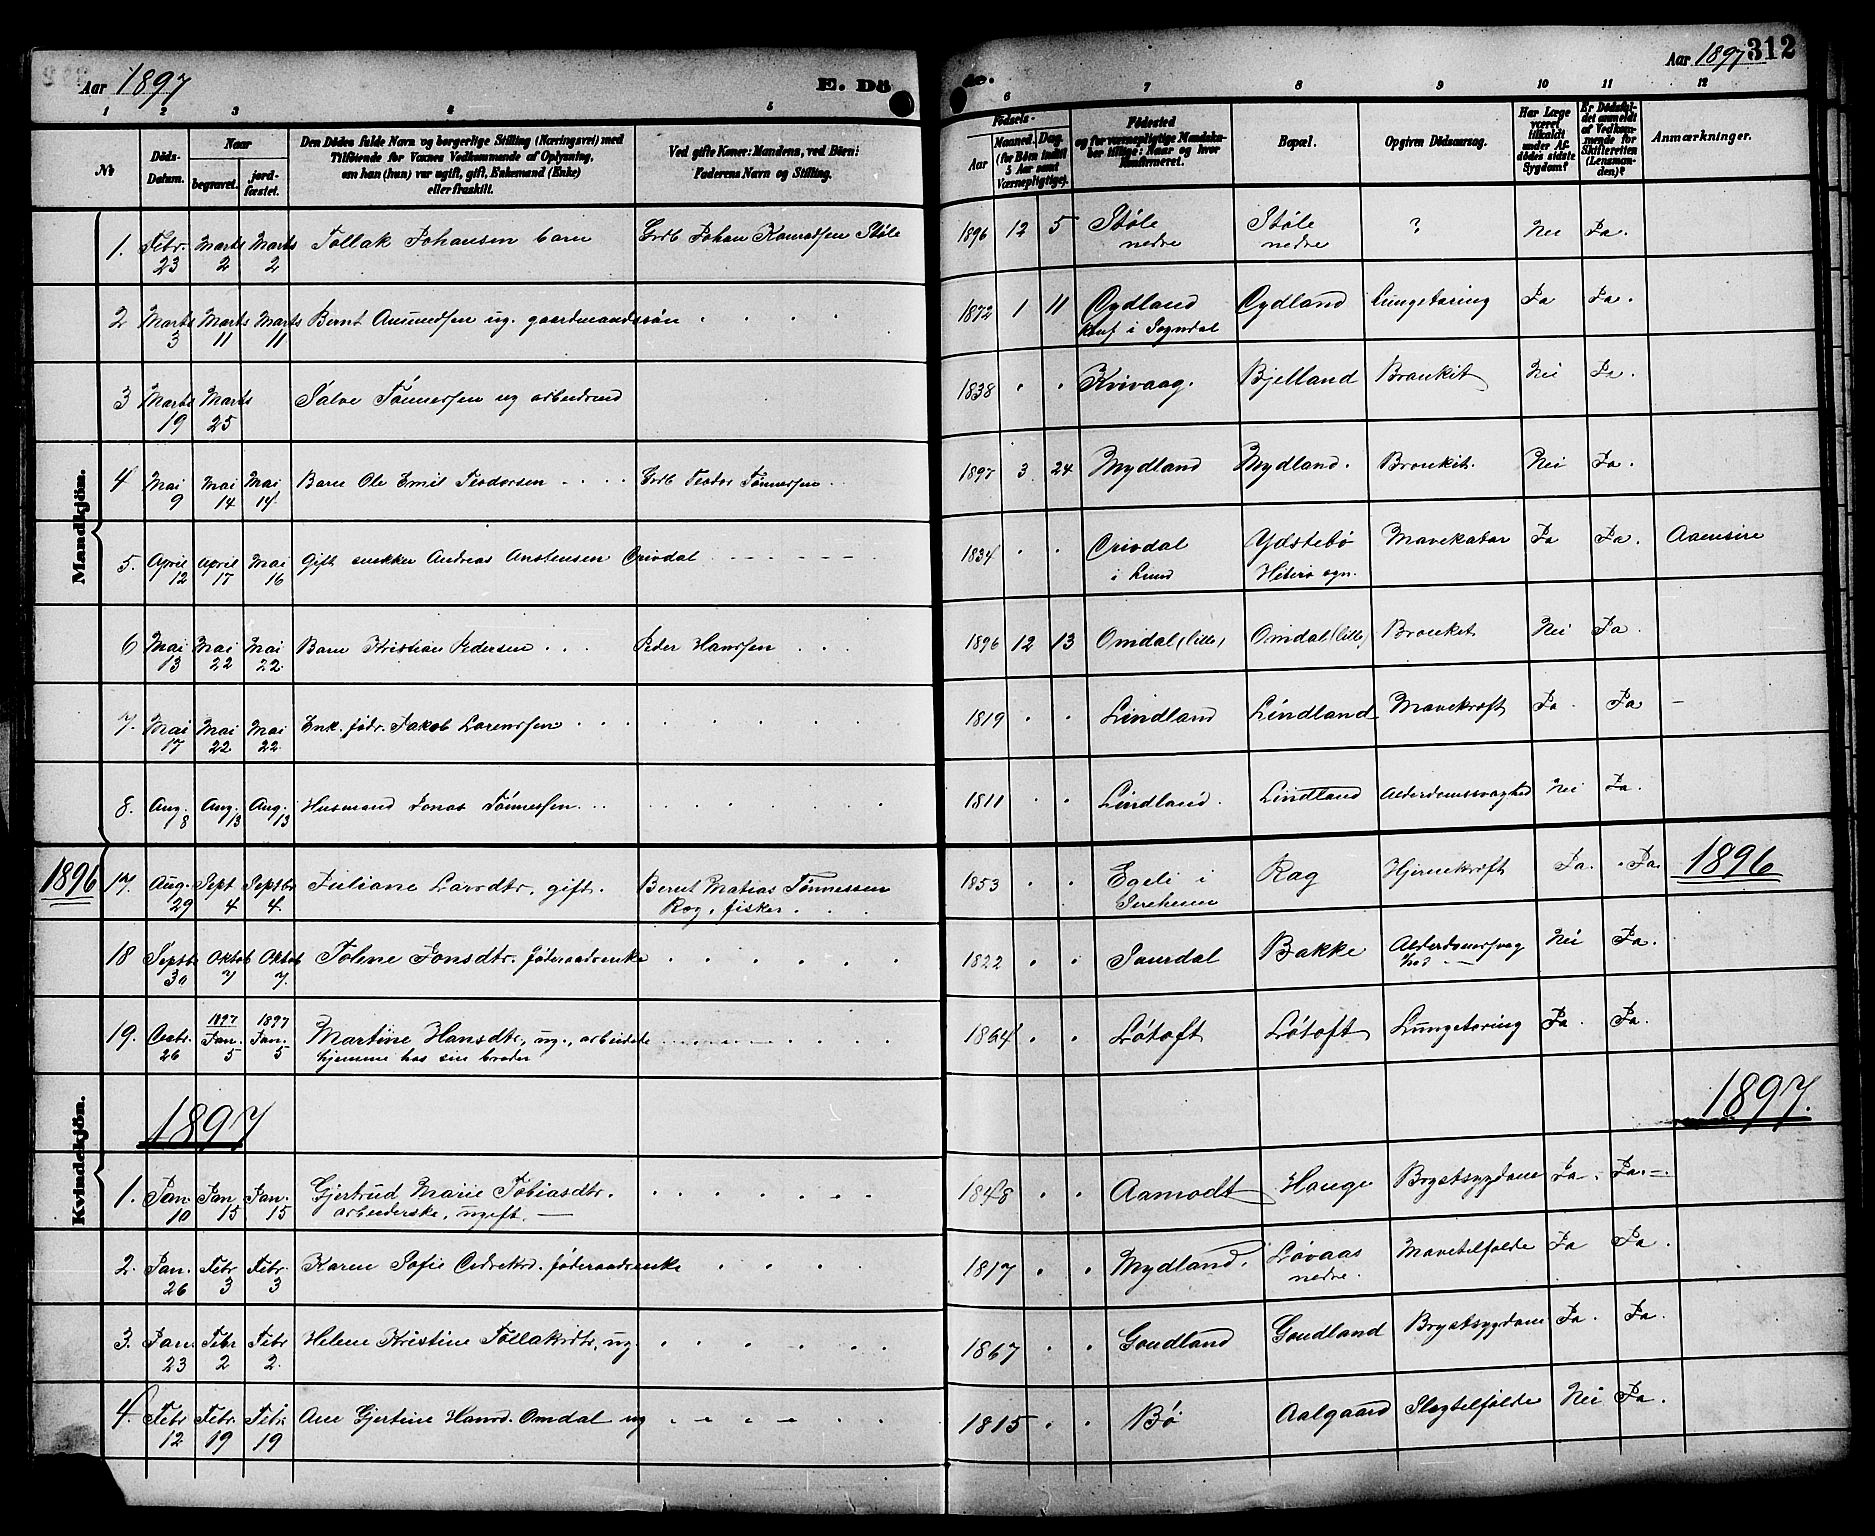 Aar 1897
E. Dö
de.
Aar 1897 312
1 2 3 4 5 6 7 8 9 10 11 12
№
Döds-Datum.
Naar
begravet.
jord-fæstet.
Den Dödes fulde Navn og borgerlige Stilling (Næringsvei) med
Tilföiende for Voxnes Vedkommende af Oplysning,
om han (hun) var ugift, gift, Enkemand (Enke)
eller fraskilt.
Ved gifte Koner: Mandens, ved Börn:
Faderens Navn og Stilling.
Födsels-
Aar
Maaned. Dag.
(for Börn indtil
5 Aar samt
Værnepligtige).
Födested
og for værnepligtige Mandskaber tillige: Naar og hvor
Konfirmeret.
Bopæl.
Opgiven Dödsaarsag.
Har Læge
været
tilkaldt
under Afdödes sidste
Sygdom?
Er Dödsfaldet anmeldt
af Vedkommende for
Skifteretten
(Lensmanden)?
Anmærkninger.
Mandkjön.
1. Febr. 23 Marts 2 Marts 2 Tollak Johansen barn Grdb Johan Konradsen Støle 1896 12 5 Støle nedre Støle nedre ? Nei Ja.
2 Marts 3 Marts 11 Marts 11 Bernt Amundsen ug. gaardmandssøn 1872 1 11 Øydland Konf i Sogndal Øydland Lungetæring Ja Ja.
3 Marts 19 Marts 25 Salve Tønnessen ug arbeidsmd 1838 Kvivaag. Bjelland Bronkit Nei Ja.
4 Mai 9 Mai 14 Mai 14 Barn Ole Emil Teodorsen Grdb Teodor Tønnessen 1897 3 24 Mydland Mydland. Bronkit. Nei Ja.
5. April 12 April 17 Mai 16 Gift snekker Andreas Anstensen 1834 i Lund Ydstebø Hiterø sogn. Mavekatar Ja Ja. Aaensire
6 Mai 13 Mai 22 Mai 22 Barn Kristian Pedersen Peder Hanssen 1896 12 13 Omdal (lille) Omdal (lille) Bronkit Nei Ja.
7. Mai 17 Mai 22 Mai 22 Enk. födr. Jakob Lorenssen 1819 Lindland Lindland Mavekræft Ja. Ja
8. Aug. 8 Aug. 13 Aug. 13 Husmand Jonas Tönnessen 1811 Lindland. Lindland Alderdomssvaghed Nei Ja.
1896 17. Aug. 29 Sept 4 Septb 4. Juliane Larsdtr, gift. Bernt Matias Tønnessen Rag, fisker. 1853 Egeli i Sireheien Rag Hjernekræft Ja. Ja. 1896
Kvindekjön.
18 Septb 30 Oktob 7 Oktob 7. Toline Jonsdtr. föderaadsenke 1822 Saurdal Bakke Alderdomssvaghed Nei Ja.
19. Decbr. 26 1897 Jan. 5 1897 Jan. 5 Martine Hansdtr, ug., arbeidete hjemme hos sin broder 1864 Løtoft Løtoft Lungetæring Ja. Ja.
1897 1897.
1. Jan. 10 Jan 15 Jan. 15 Gjertrud Marie Tobiasdtr. arbeiderske, ugift. 1848 Aamodt Hauge Brystsygdom Ja. Ja.
2. Jan. 26 Febr 3 Febr. 3 Karen Sofie föderaadsenke 1817 Mydland. Løvaas nedre. Mavetilfælde Ja Ja.
3. Jan. 23 Febr 2 Febr 2. Helene Kristine Tollaksdtr, ug. 1867 Goudland Goudland Brystsygdom Ja. Ja.
4. Febr 12 Febr. 19 Febr. 19 Ane Gjertine Hansd. Omdal ug 1815 Bø Aalgaard Slagtilfælde Nei Ja.